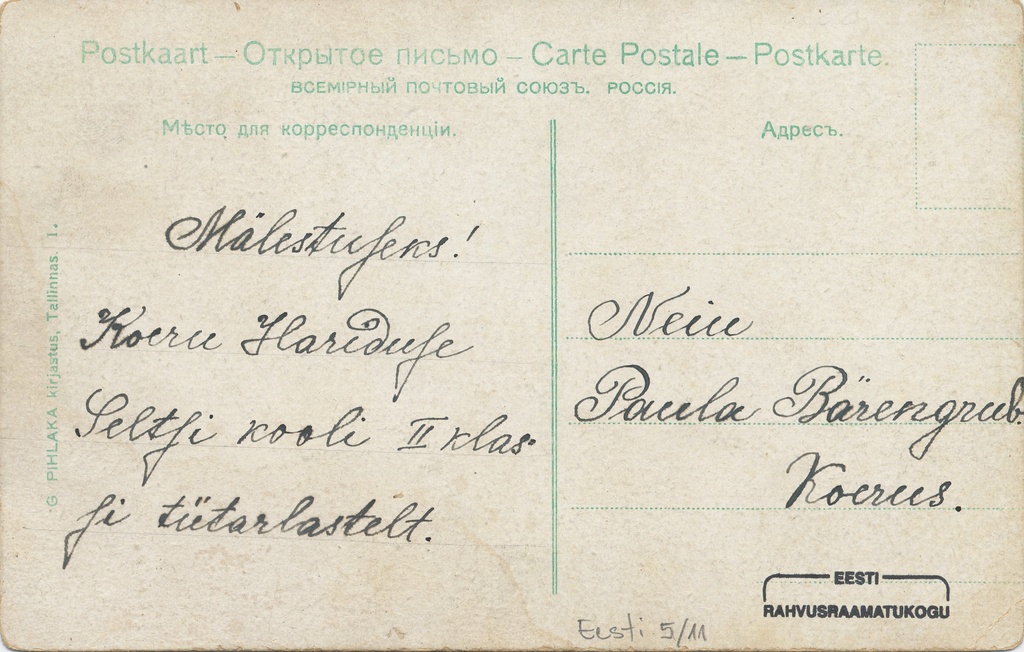 Postkaart – Открытое письмо – Carte Postale – Postkarte.
ВСЕМІРНЫЙ ПОЧТОВЫЙ СОЮЗЪ. РОССІЯ.
Мѣсто для корреспонденціи.
Адресъ.
G. PIHLAKA kirjastus, Tallinnas. I.
Mälestuſeks!
Koeru Hariduſe
Seltſi kooli II klas-
ſi tütarlastelt.
Neiu
Paula Bärengrub.
Koerus.
EESTI
RAHVUSRAAMATUKOGU
Eesti 5/11